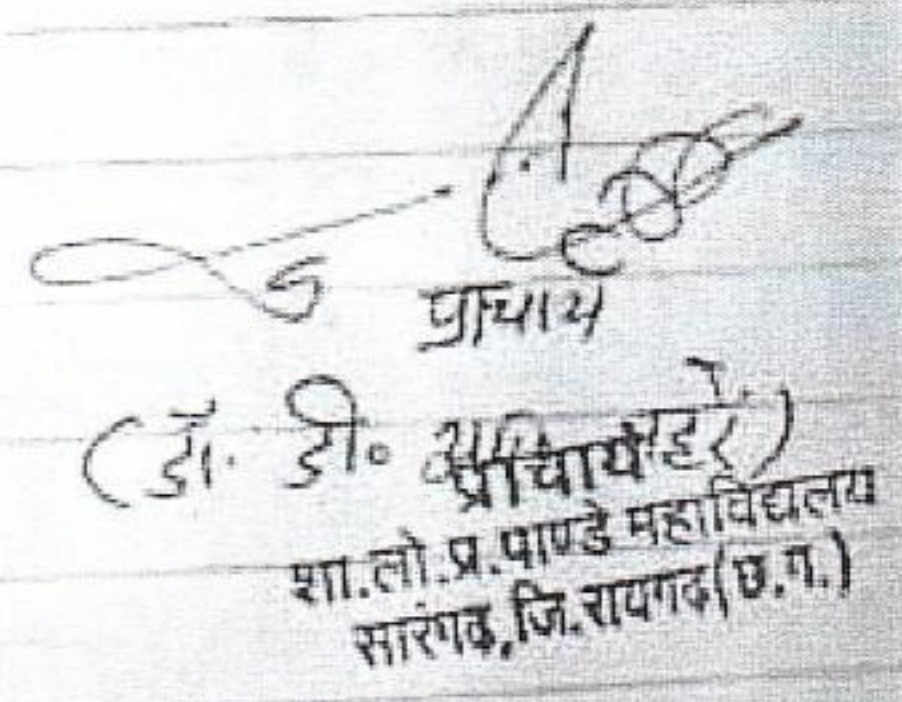 प्राचार्य
(डॉ. डी.
प्राचार्य
शा.लो.प्र.पाण्डे महाविद्यालय
सारंगढ़,जि.रायगढ़(छ.ग.)